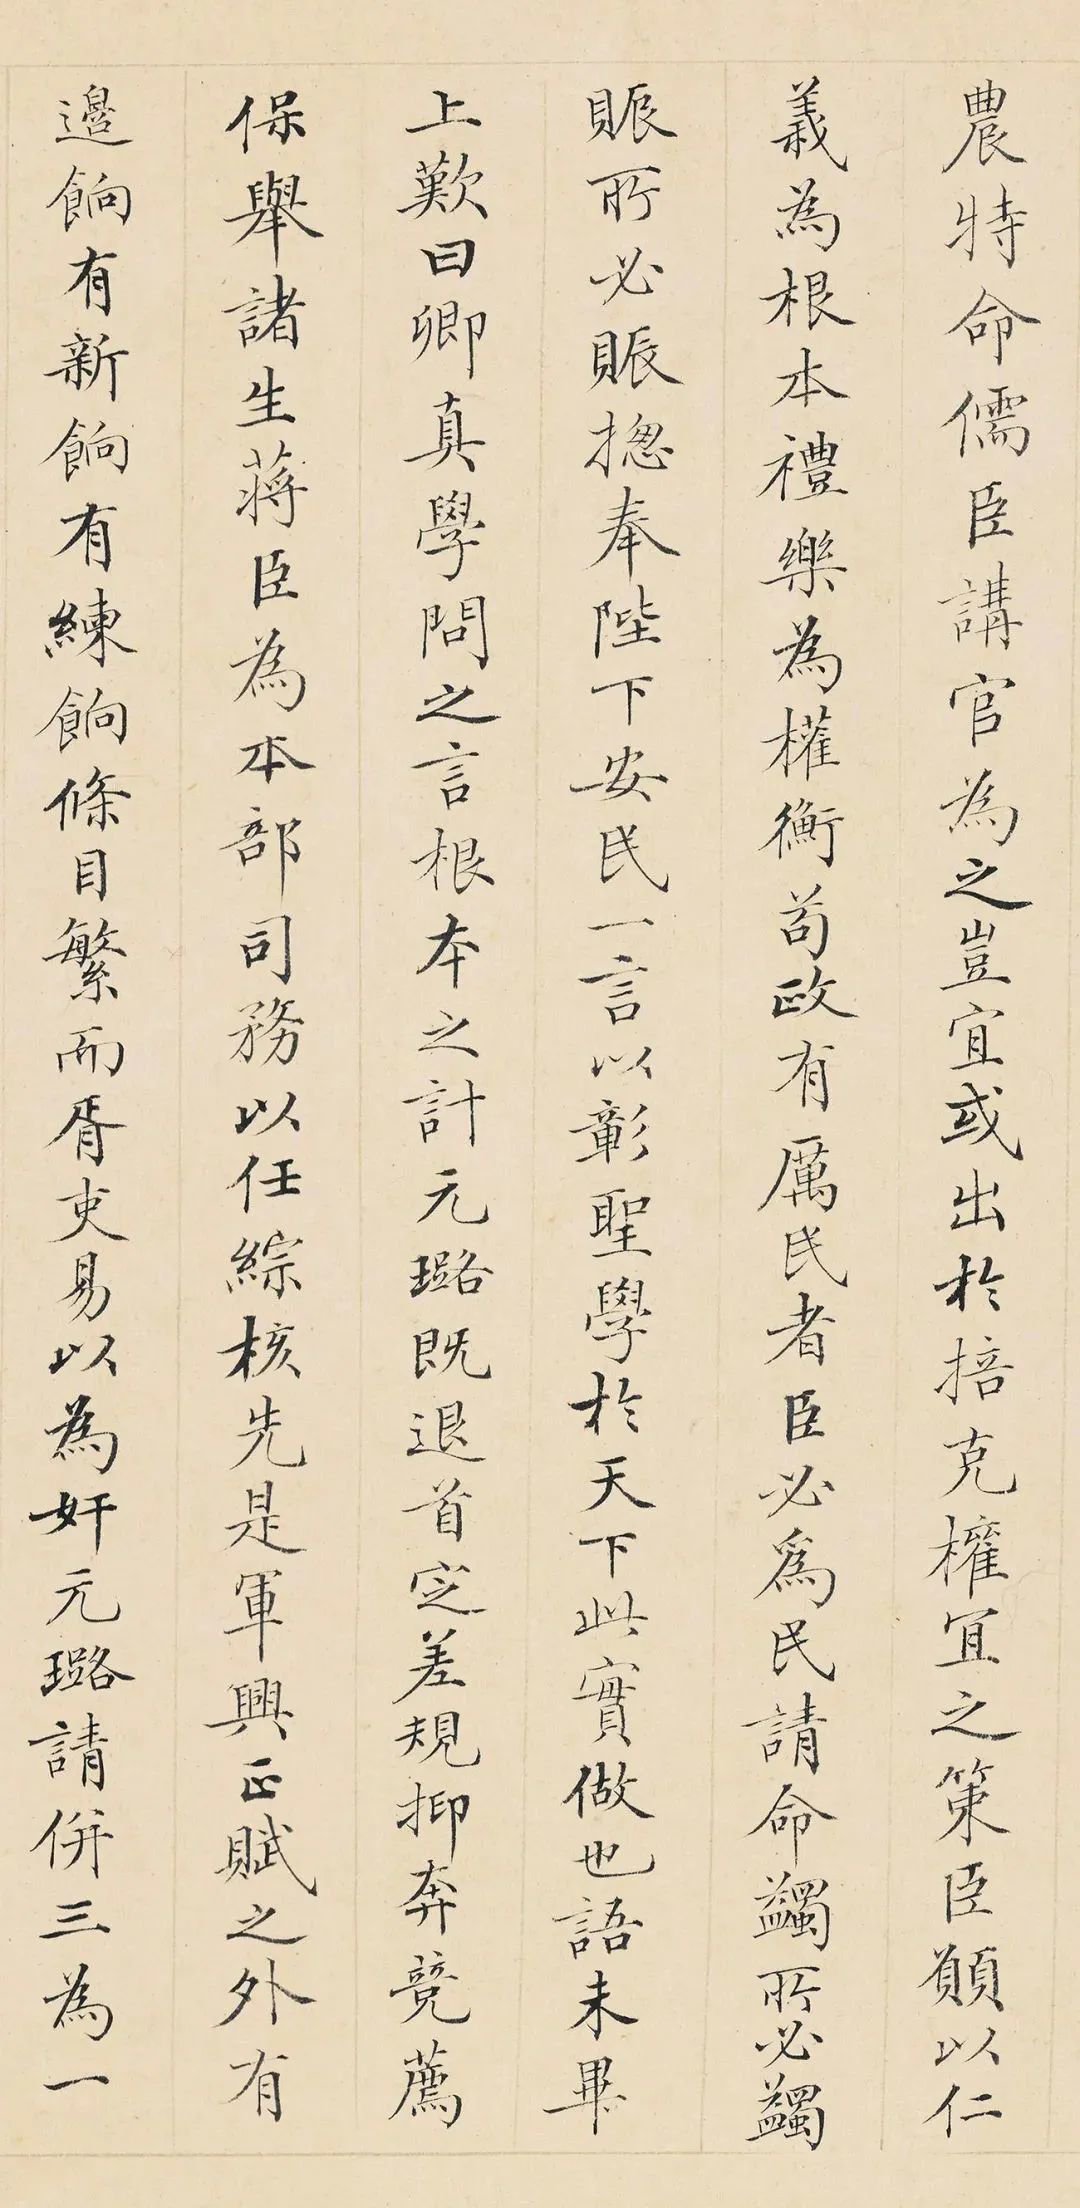 農特命儒臣講官為之豈宜或出於掊克權宜之策臣願以仁
義為根本禮樂為權衡苟政有厲民者臣必為民請命蠲所必蠲
賑所必賑摠奉陛下安民一言以彰聖學於天下此實做也語未畢
上歎曰卿真學問之言根本之計元璐既退首定差規抑奔競薦
保舉諸生蔣臣為本部司務以任綜核先是軍興正賦之外有
邊餉有新餉有練餉條目繁而胥吏易以為奸元璐請併三為一